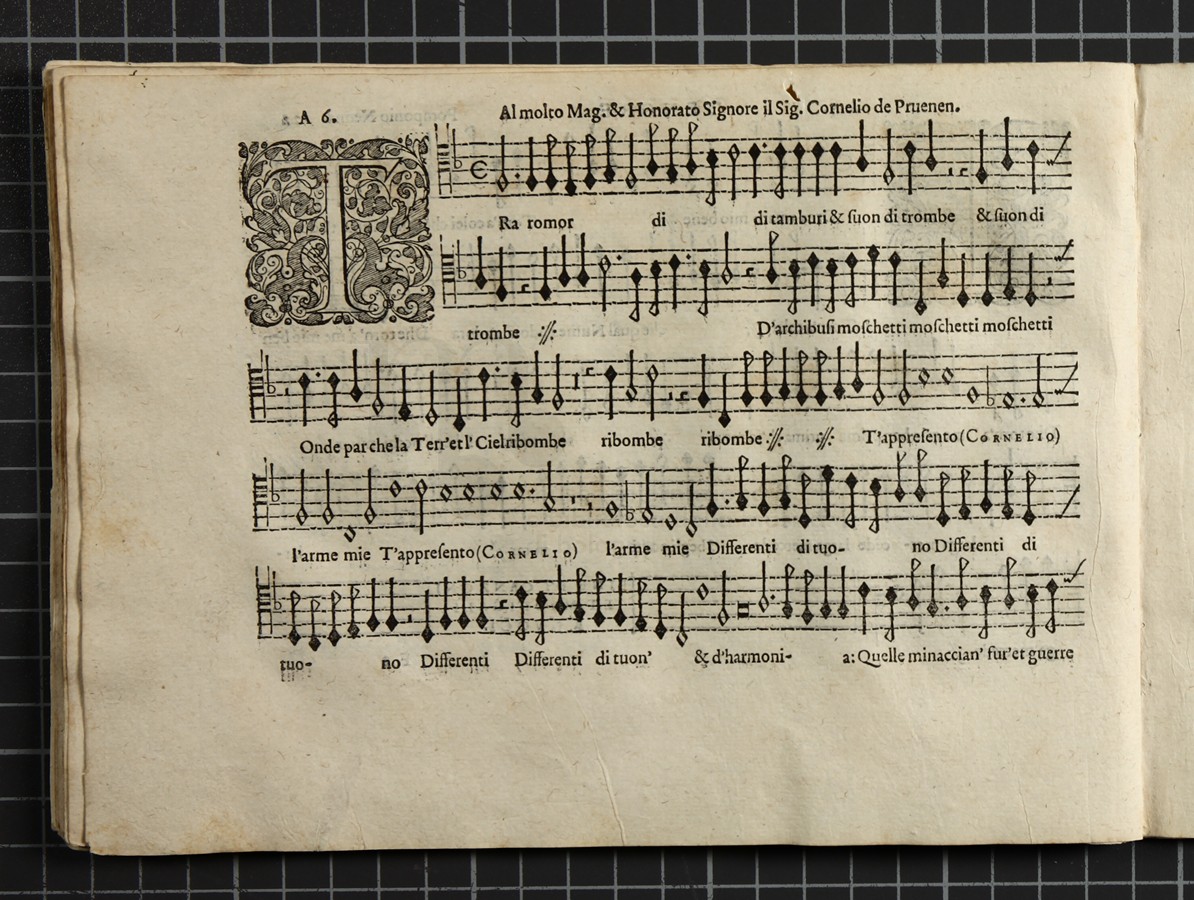 A 6.
Al molto Mag. & Honorato Signore il Sig. Cornelio de Pruenen.
TRa romor di di tamburi & ſuon di trombe & ſuon di
trombe ://: D'archibuſi moſchetti moſchetti moſchetti
Onde par che la Terr'et l' Ciel ribombe ribombe ribombe :://: :://: T'appreſento (CORNELIO)
l'arme mie T'appreſento (CORNELIO) l'arme mie Differenti di tuo- no Differenti di
tuo- no Differenti Differenti di tuon' & d'harmoni- a: Quelle minaccian' fur'et guerre